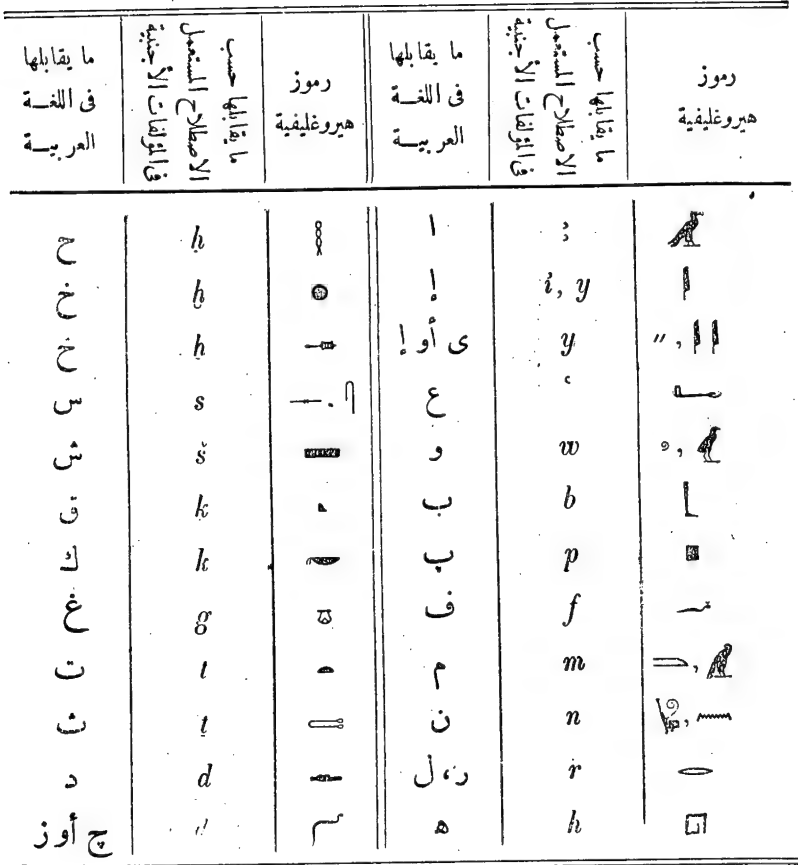 رموز هيروغليفية | ما يقابلها حسب الاصطلاح المستعمل فى المؤلفات الأجنبية | ما يقابلها فى اللغة العربية | رموز هيروغليفية | ما يقابلها حسب الاصطلاح المستعمل فى المؤلفات الأجنبية | ما يقابلها فى اللغة العربية
𓄿 | ꜣ | ا | 𓎛 | ḥ | ح
𓇋 | i̓, y | إ | 𓐍 | ḫ | خ
𓇋𓇋 , 〃 | y | ى أو إ | 𓄡 | ẖ | خ
𓂝 | ꜥ | ع | 𓋴 . 𓊃 | s | س
𓅱 , 𓏲 | w | و | 𓈙 | š | ش
𓃀 | b | ب | 𓈎 | ḳ | ق
𓊪 | p | پ | 𓎡 | k | ك
𓆑 | f | ف | 𓎼 | g | غ
𓅓 , 𓐝 | m | م | 𓏏 | t | ت
𓈖 , 𓋔 | n | ن | 𓍿 | ṯ | ث
𓂋 | r | ر، ل | 𓂧 | d | د
𓉔 | h | ه | 𓆓 | ḏ | چ أو ز